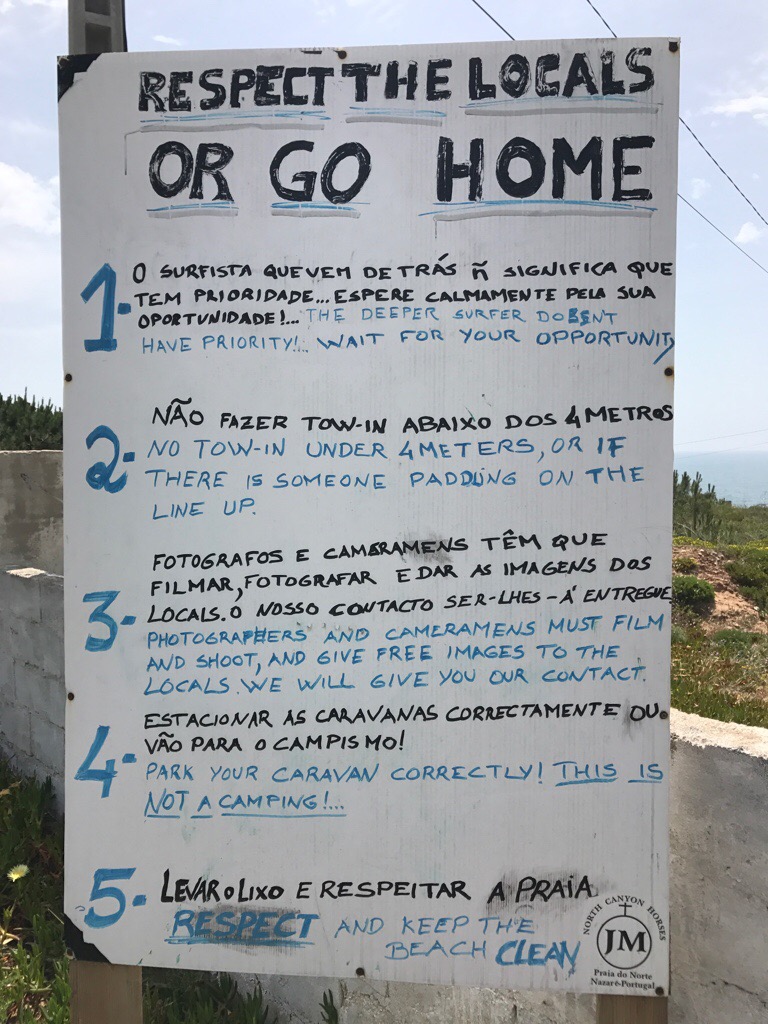 RESPECT THE LOCALS
OR GO HOME
1- O SURFISTA QUE VEM DE TRÁS Ñ SIGNIFICA QUE
TEM PRIORIDADE... ESPERE CALMAMENTE PELA SUA
OPORTUNIDADE!... THE DEEPER SURFER DOESNT
HAVE PRIORITY!.. WAIT FOR YOUR OPPORTUNITY
2- NÃO FAZER TOW-IN ABAIXO DOS 4 METROS
NO TOW-IN UNDER 4 METERS, OR IF
THERE IS SOMEONE PADDLING ON THE
LINE UP.
3- FOTOGRAFOS E CAMERAMENS TÊM QUE
FILMAR, FOTOGRAFAR E DAR AS IMAGENS DOS
LOCALS. O NOSSO CONTACTO SER-LHES-Á ENTREGUE
PHOTOGRAPHERS AND CAMERAMENS MUST FILM
AND SHOOT, AND GIVE FREE IMAGES TO THE
LOCALS. WE WILL GIVE YOU OUR CONTACT.
4- ESTACIONAR AS CARAVANAS CORRECTAMENTE OU
VÃO PARA O CAMPISMO!
PARK YOUR CARAVAN CORRECTLY! THIS IS
NOT A CAMPING!...
5- LEVAR O LIXO E RESPEITAR A PRAIA
RESPECT AND KEEP THE
BEACH CLEAN
NORTH CANYON HORSES
JM
Praia do Norte
Nazaré-Portugal